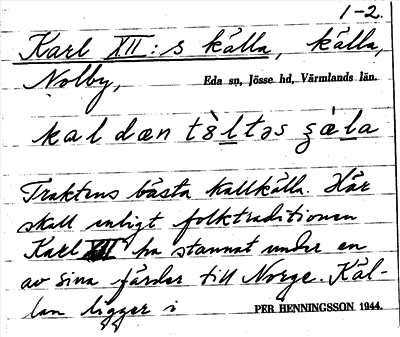 1-2.
Karl XII:s källa, källa,
Nolby, Eda sn, Jösse hd, Värmlands län.
kal dæn tɵ̀ltəs ʂæ̀la
Traktens bästa kallkälla. Här
skall enligt folktraditionen
Karl XII ha stannat under en
av sina färder till Norge. Käl-
lan ligger i PER HENNINGSSON 1944.